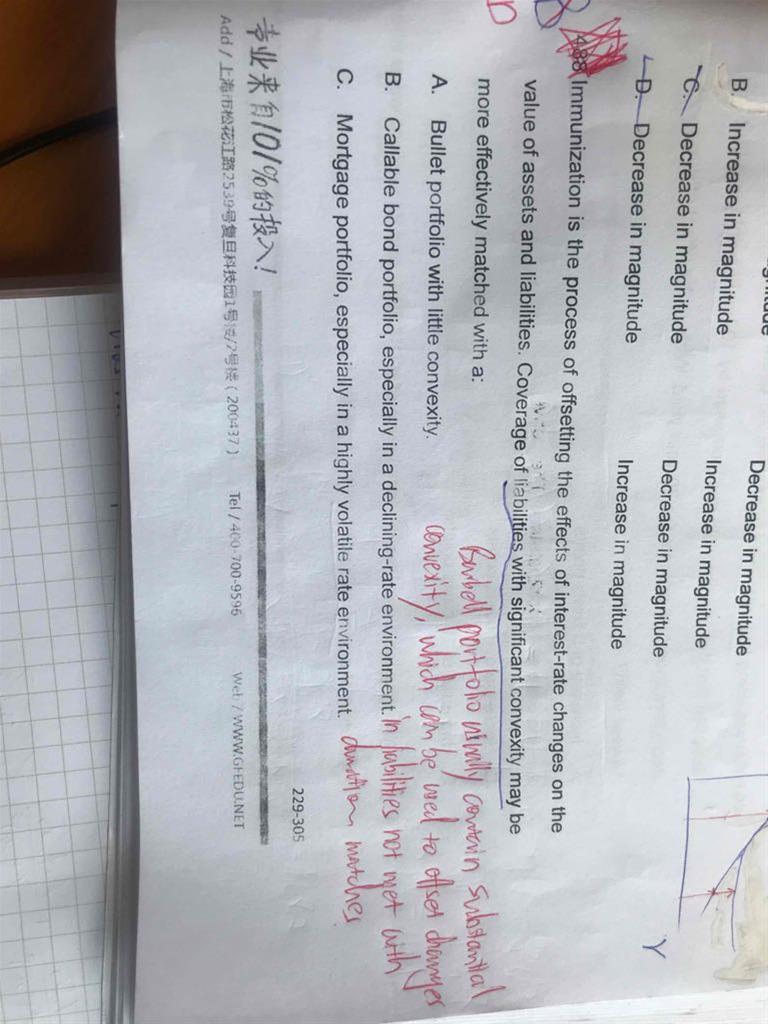 B. Increase in magnitude Decrease in magnitude
C. Decrease in magnitude Increase in magnitude
D. Decrease in magnitude Decrease in magnitude
Increase in magnitude
Y
Immunization is the process of offsetting the effects of interest-rate changes on the
value of assets and liabilities. Coverage of liabilities with significant convexity may be
more effectively matched with a:
A. Bullet portfolio with little convexity.
B. Callable bond portfolio, especially in a declining-rate environment.
C. Mortgage portfolio, especially in a highly volatile rate environment.
Barbell portfolio usually contain substantial
convexity, which can be used to offset changes
in liabilities not met with
duration matches
229-305
专业来自101%的投入!
Add / 上海市松花江路2539号复旦科技园1号楼/2号楼 ( 200437 ) Tel / 400-700-9596 Web / WWW.GFEDU.NET